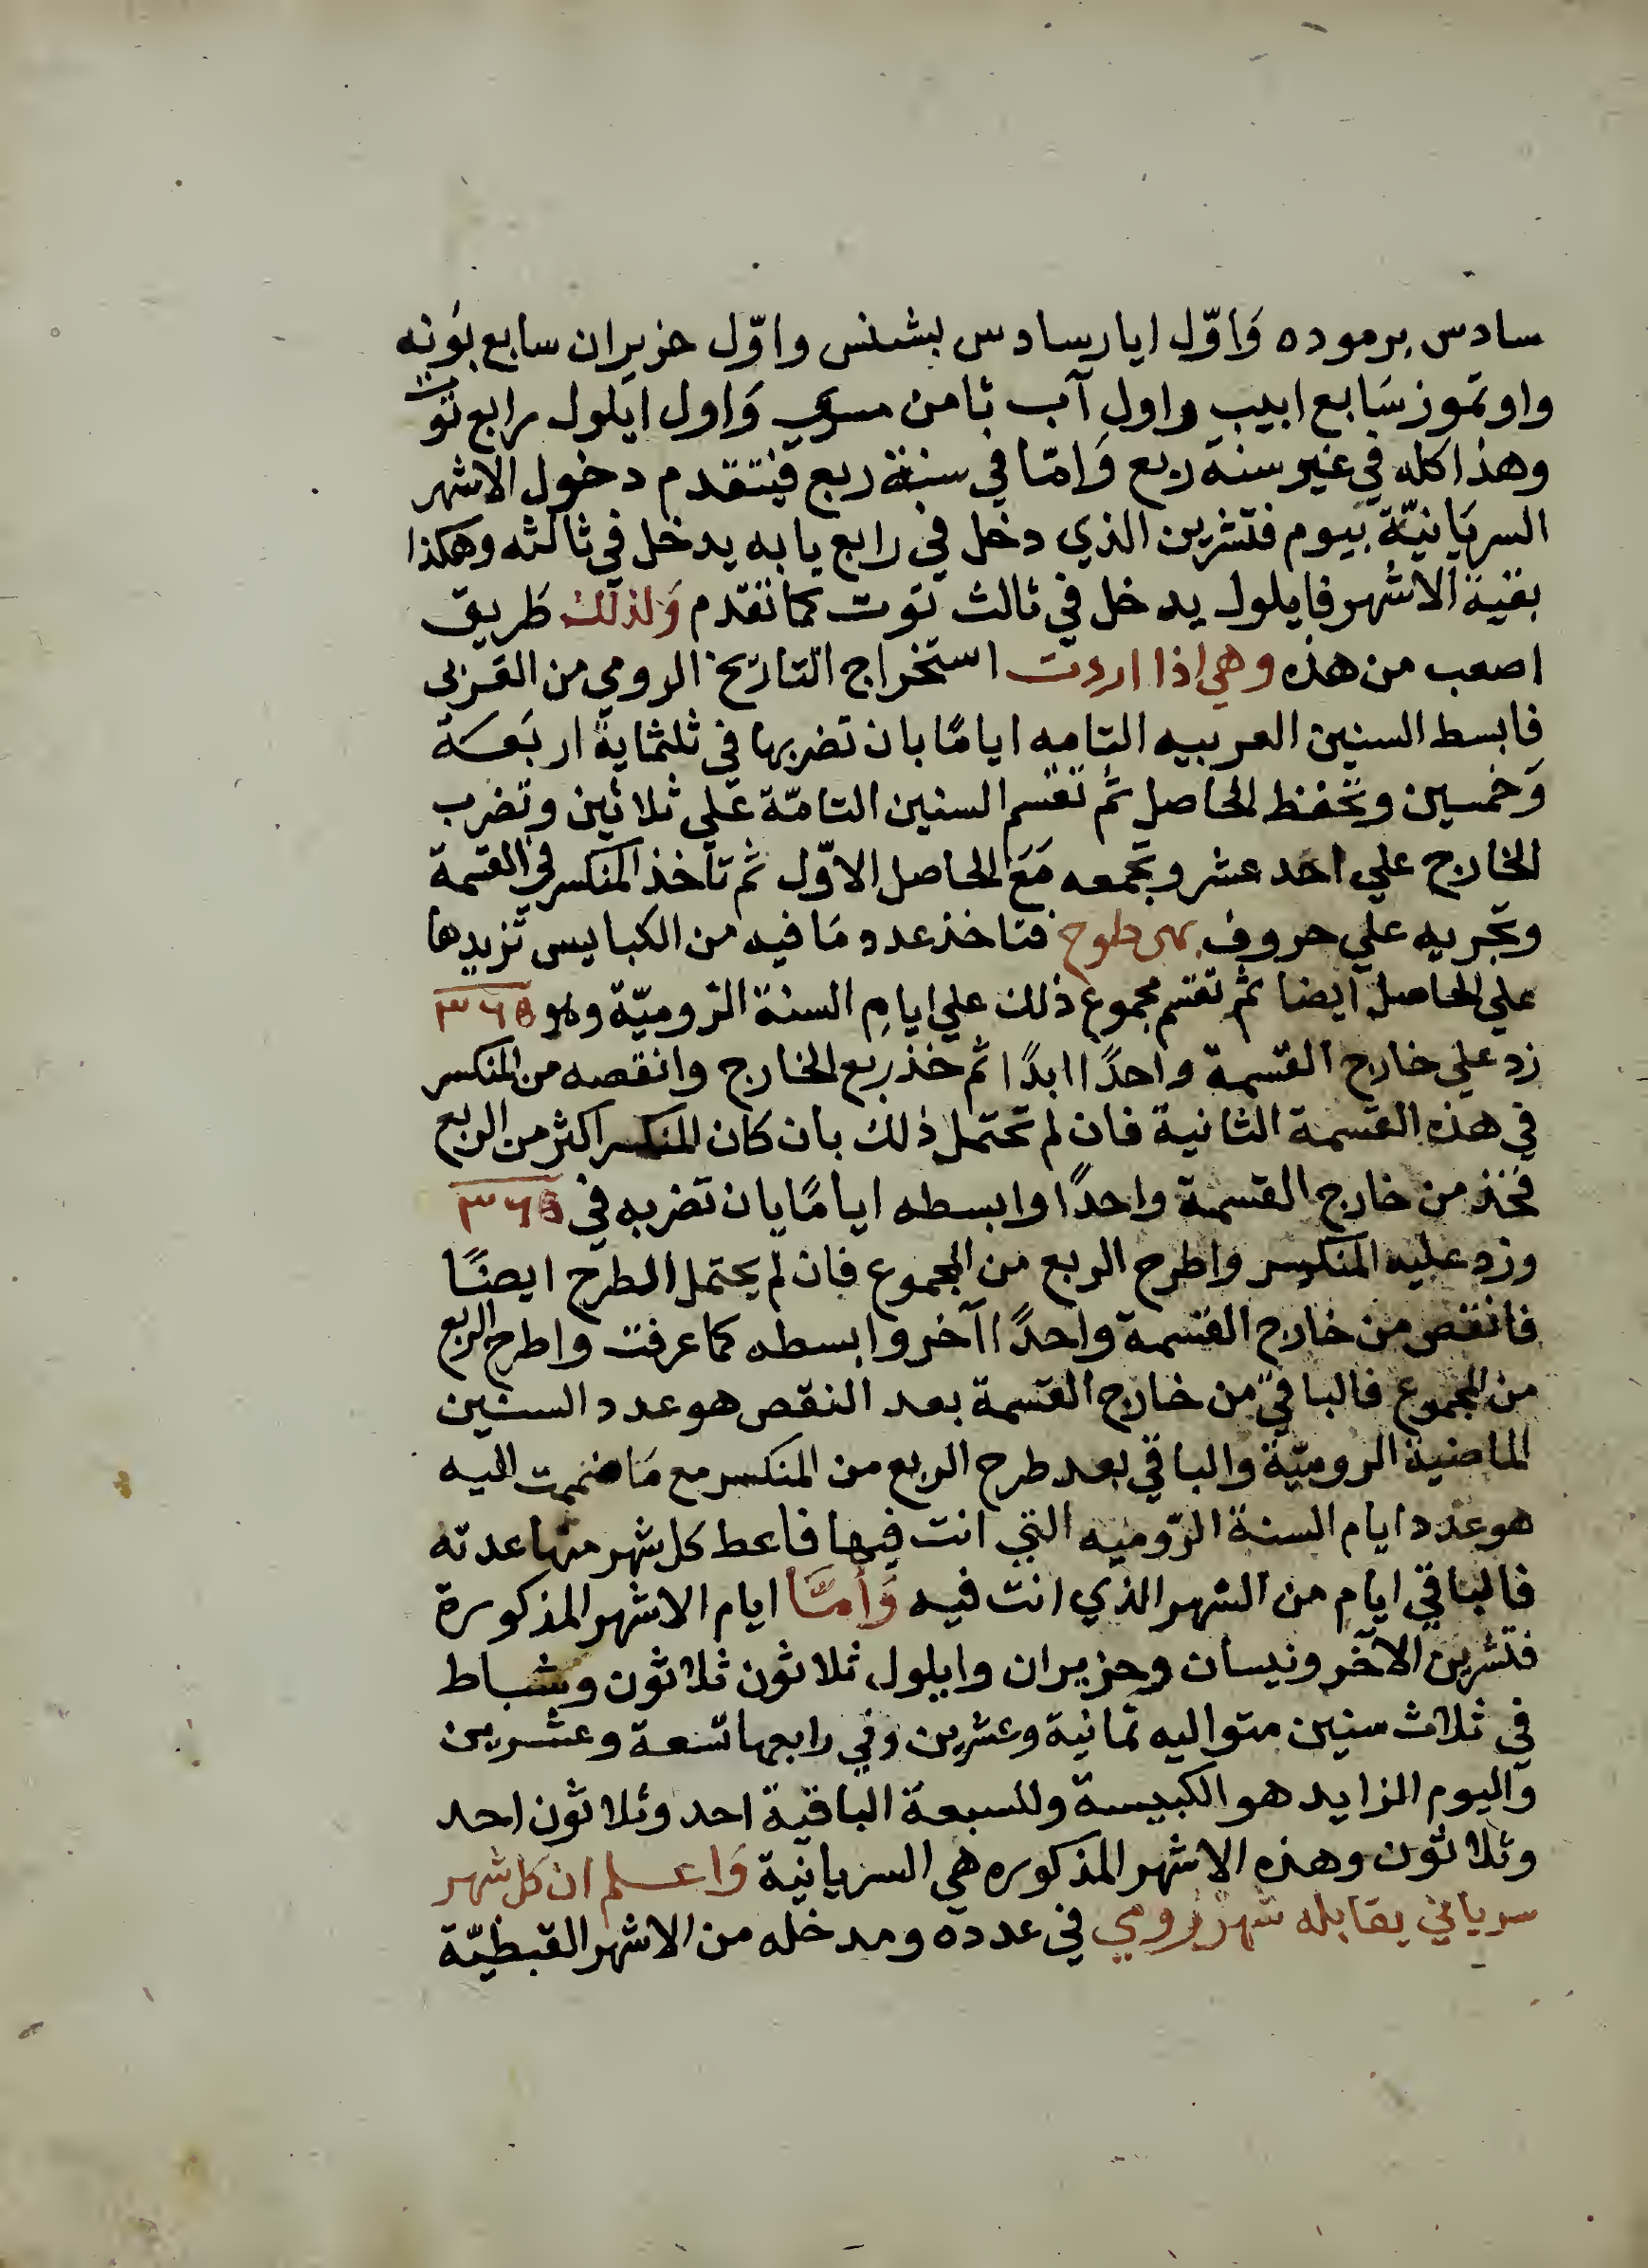 سادس برموده وَاوّل ايار سادس بشنس واوّل حزيران سابع بَونه
واو تموز سَابع ابيب واول آب ثامن مسري وَاول ايلول رابع توت
وهذا كله في غير سنة ربع وَامّا في سنة ربع فيتقدم دخول الاشهر
السريَانيّة بيوم فتشرين الذي دخل في رابع بابه يدخل في ثالثه وهكذا
بقية الاشهر فايلول يدخل في ثالث توت كما تقدم وَلذلك طريق
اصعب من هذه وهي اذا اردت استخراج التاريخ الرومي من العربى
فابسط السنين العربيه التامه ايامًا بان تضربها في ثلثماية اربَعة
وَخمسين وتحفظ الحاصل ثم تقسم السنين التامّة علي ثلاثين وتضرب
الخارج علي احد عشر وتجمعه مَعَ الحاصل الاوّل ثم تاخذ المنكسر في القسمة
وتجريه علي حروف فتاخذ عدد مَا فيه من الكبايس تزيدها
علي الحاصل ايضا ثم تقسم مجموع ذلك علي ايام السنة الرّوميّة وهو ٣٦٥
زد علي خارج القسمة واحدًا ابدًا ثم خذ ربع الخارج وانقصه من المنكسر
في هذه القسمة الثانية فان لم تحتمل ذلك بان كان المنكسر اكثر من الربع
فخذ من خارج القسمة واحدًا وابسطه ايامًا بان تضربه في ٣٦٥
وزد عليه المنكسر واطرح الربع من المجموع فان لم يحتمل الطرح ايضًا
فانقص من خارج القسمة واحدًا آخر وابسطه كما عرفت واطرح الربع
من المجموع فالباقي من خارج القسمة بعد النقص هو عدد السنين
الماضية الروميّة والباقي بعد طرح الربع من المنكسر مع مَا ضممت اليه
هو عدد ايام السنة الرّوميه التي انت فيها فاعط كل شهر منها عدته
فالباقي ايام من الشهر الذي انت فيه وَأمَّا ايام الاشهر المذكورة
فتشرين الآخر ونيسان وحزيران وايلول ثلاثون ثلاثون وشباط
في ثلاث سنين متواليه ثمانية وعشرين وفي رابعها تسعة وعشرين
واليوم الزايد هو الكبيسة وللسبعة الباقية احد وثلاثون احد
وثلاثون وهذه الاشهر المذكوره هي السريانية وَاعلم ان كل شهر
سرياني يقابله شهر رومي في عدده ومدخله من الاشهر القبطيّة